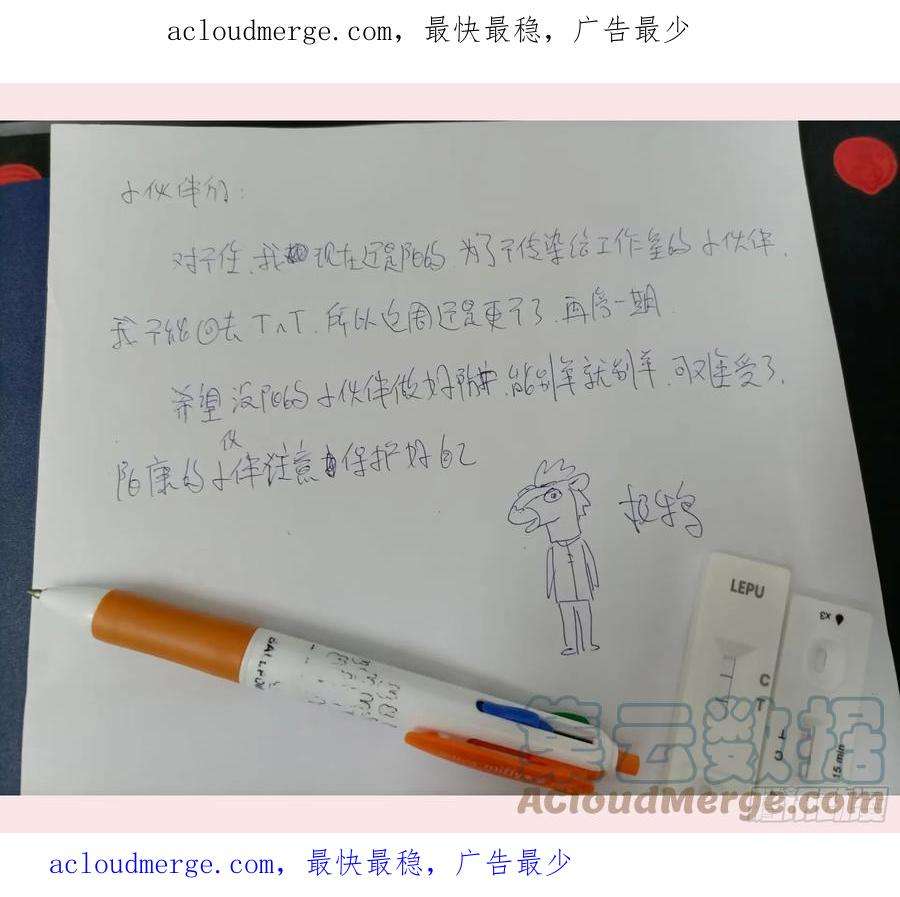 acloudmerge.com，最快最稳，广告最少
小伙伴们：
对不住，我现在还是阳的，为了不传染给工作室的小伙伴，
我不能回去TnT，所以这周还是更不了，再停一期，
希望没阳的小伙伴做好防护，能别羊就别羊，可难受了，
阳康的小伙伴注意保护好自己
LEPU
C
T
X3
15 min
集云数据
AcloudMerge.com
acloudmerge.com，最快最稳，广告最少